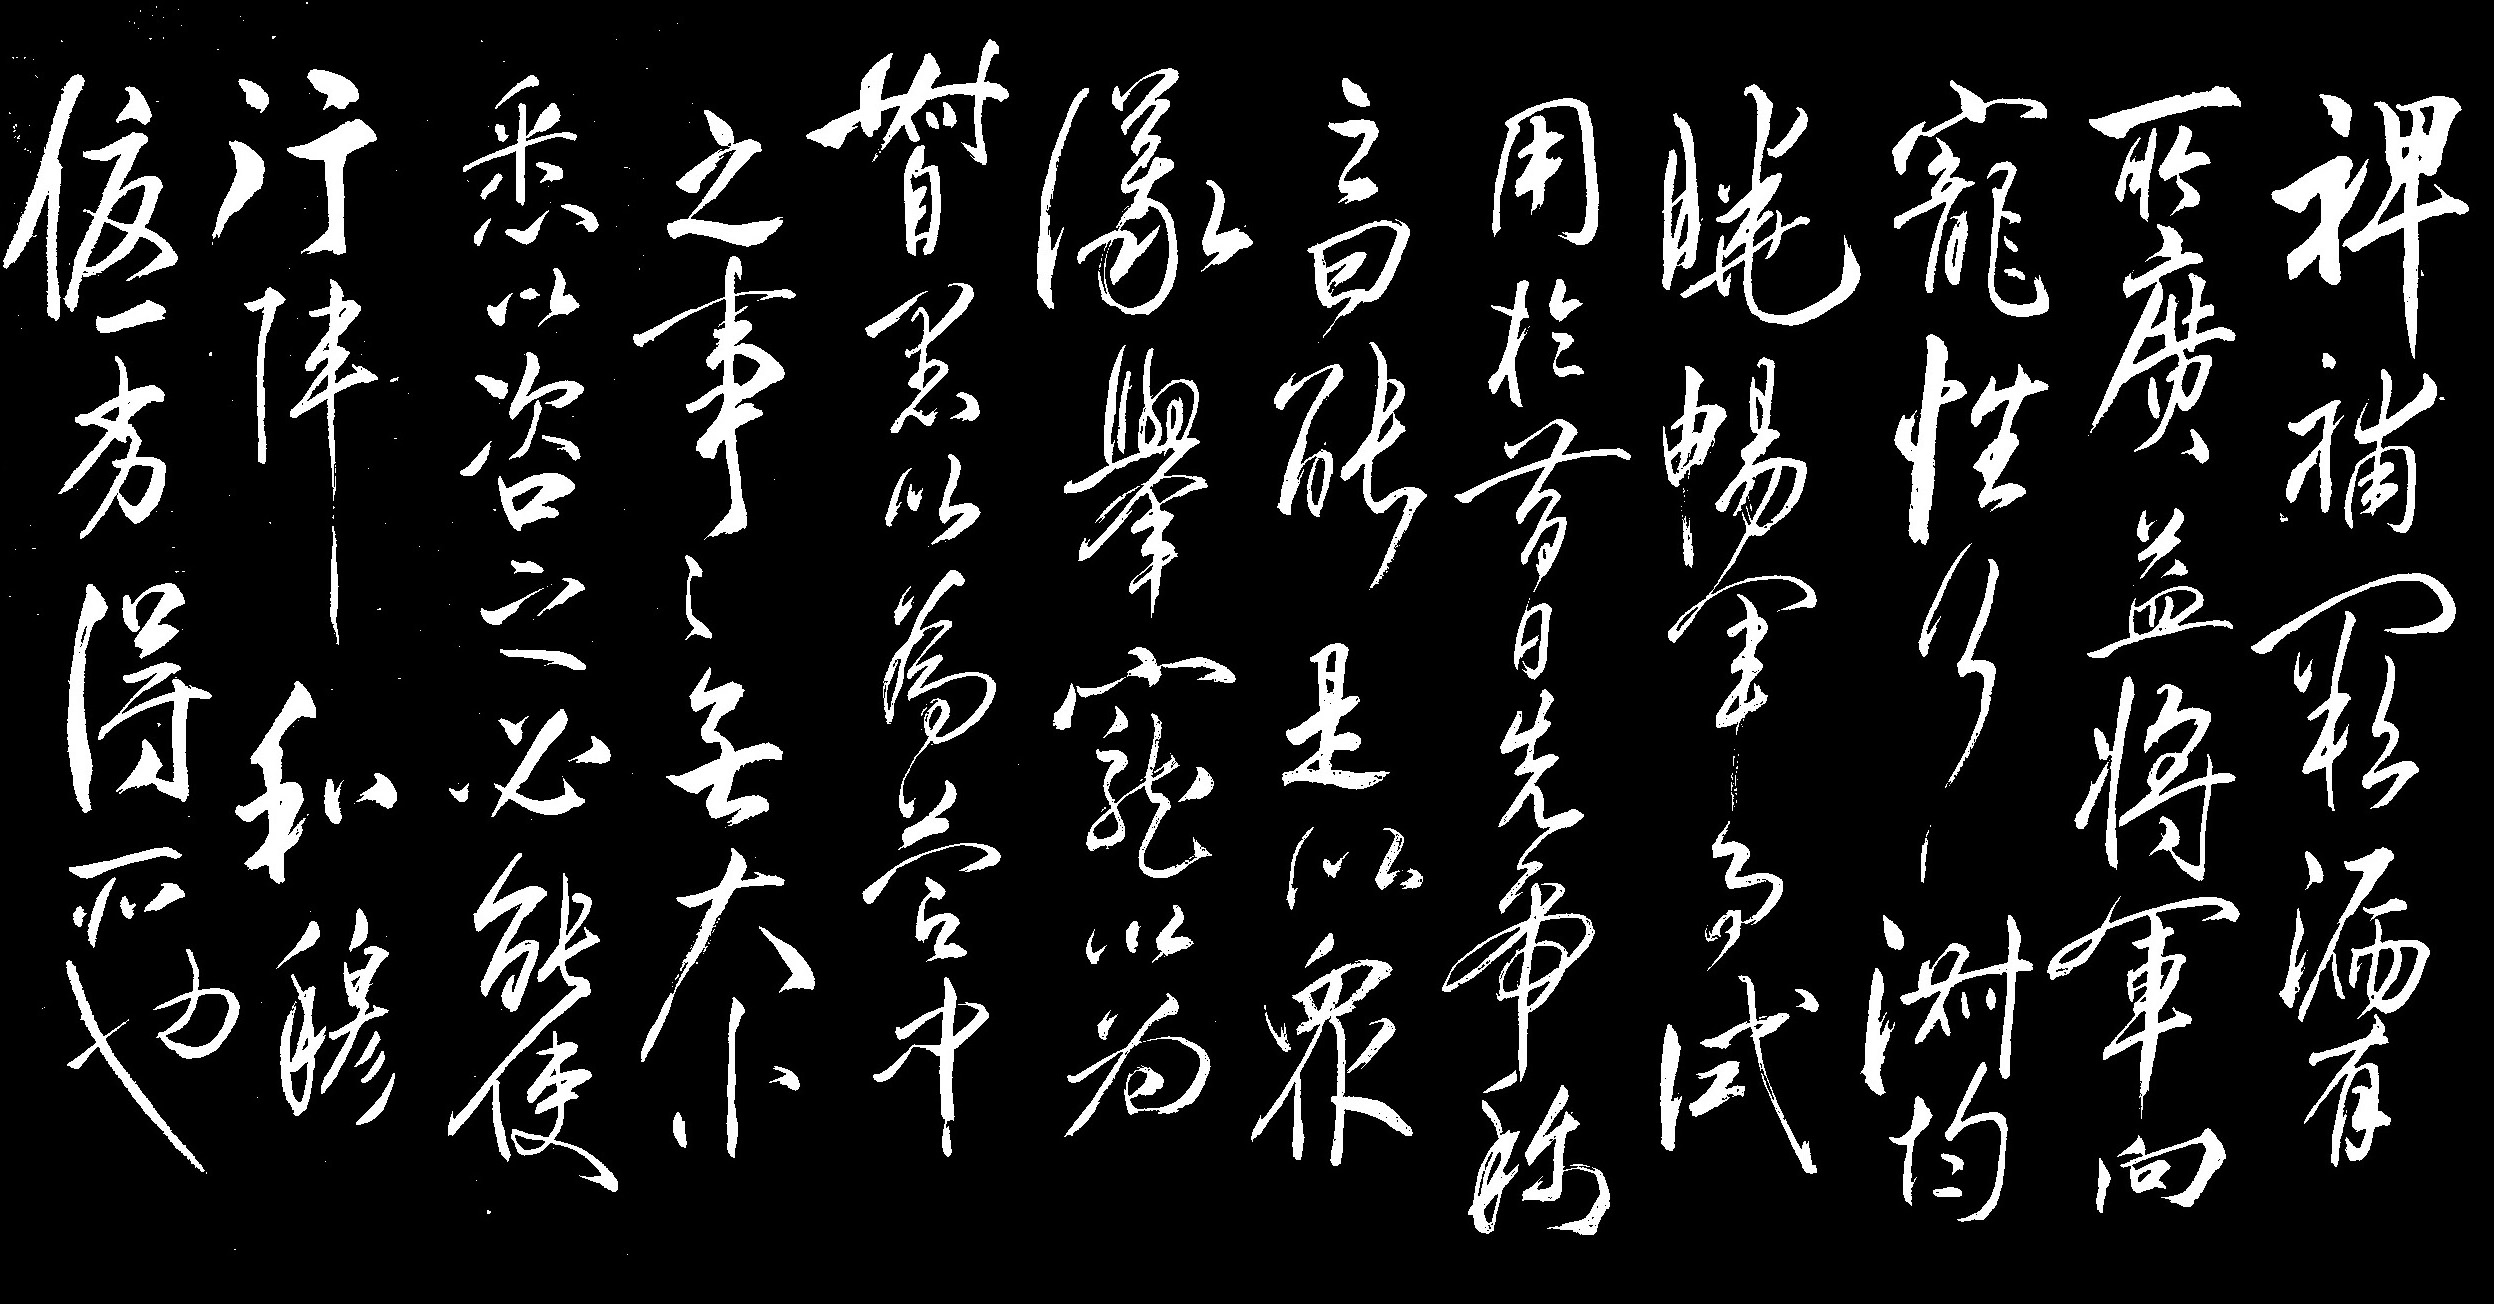 裨補闕漏有
所廣益將軍向
寵性行淑均
曉暢軍事試
用於昔日先帝稱
之曰能是以衆
議舉寵以為
督愚以為營中
之事〻無大小
悉以咨之必能使
行陣和穆
優劣得所也